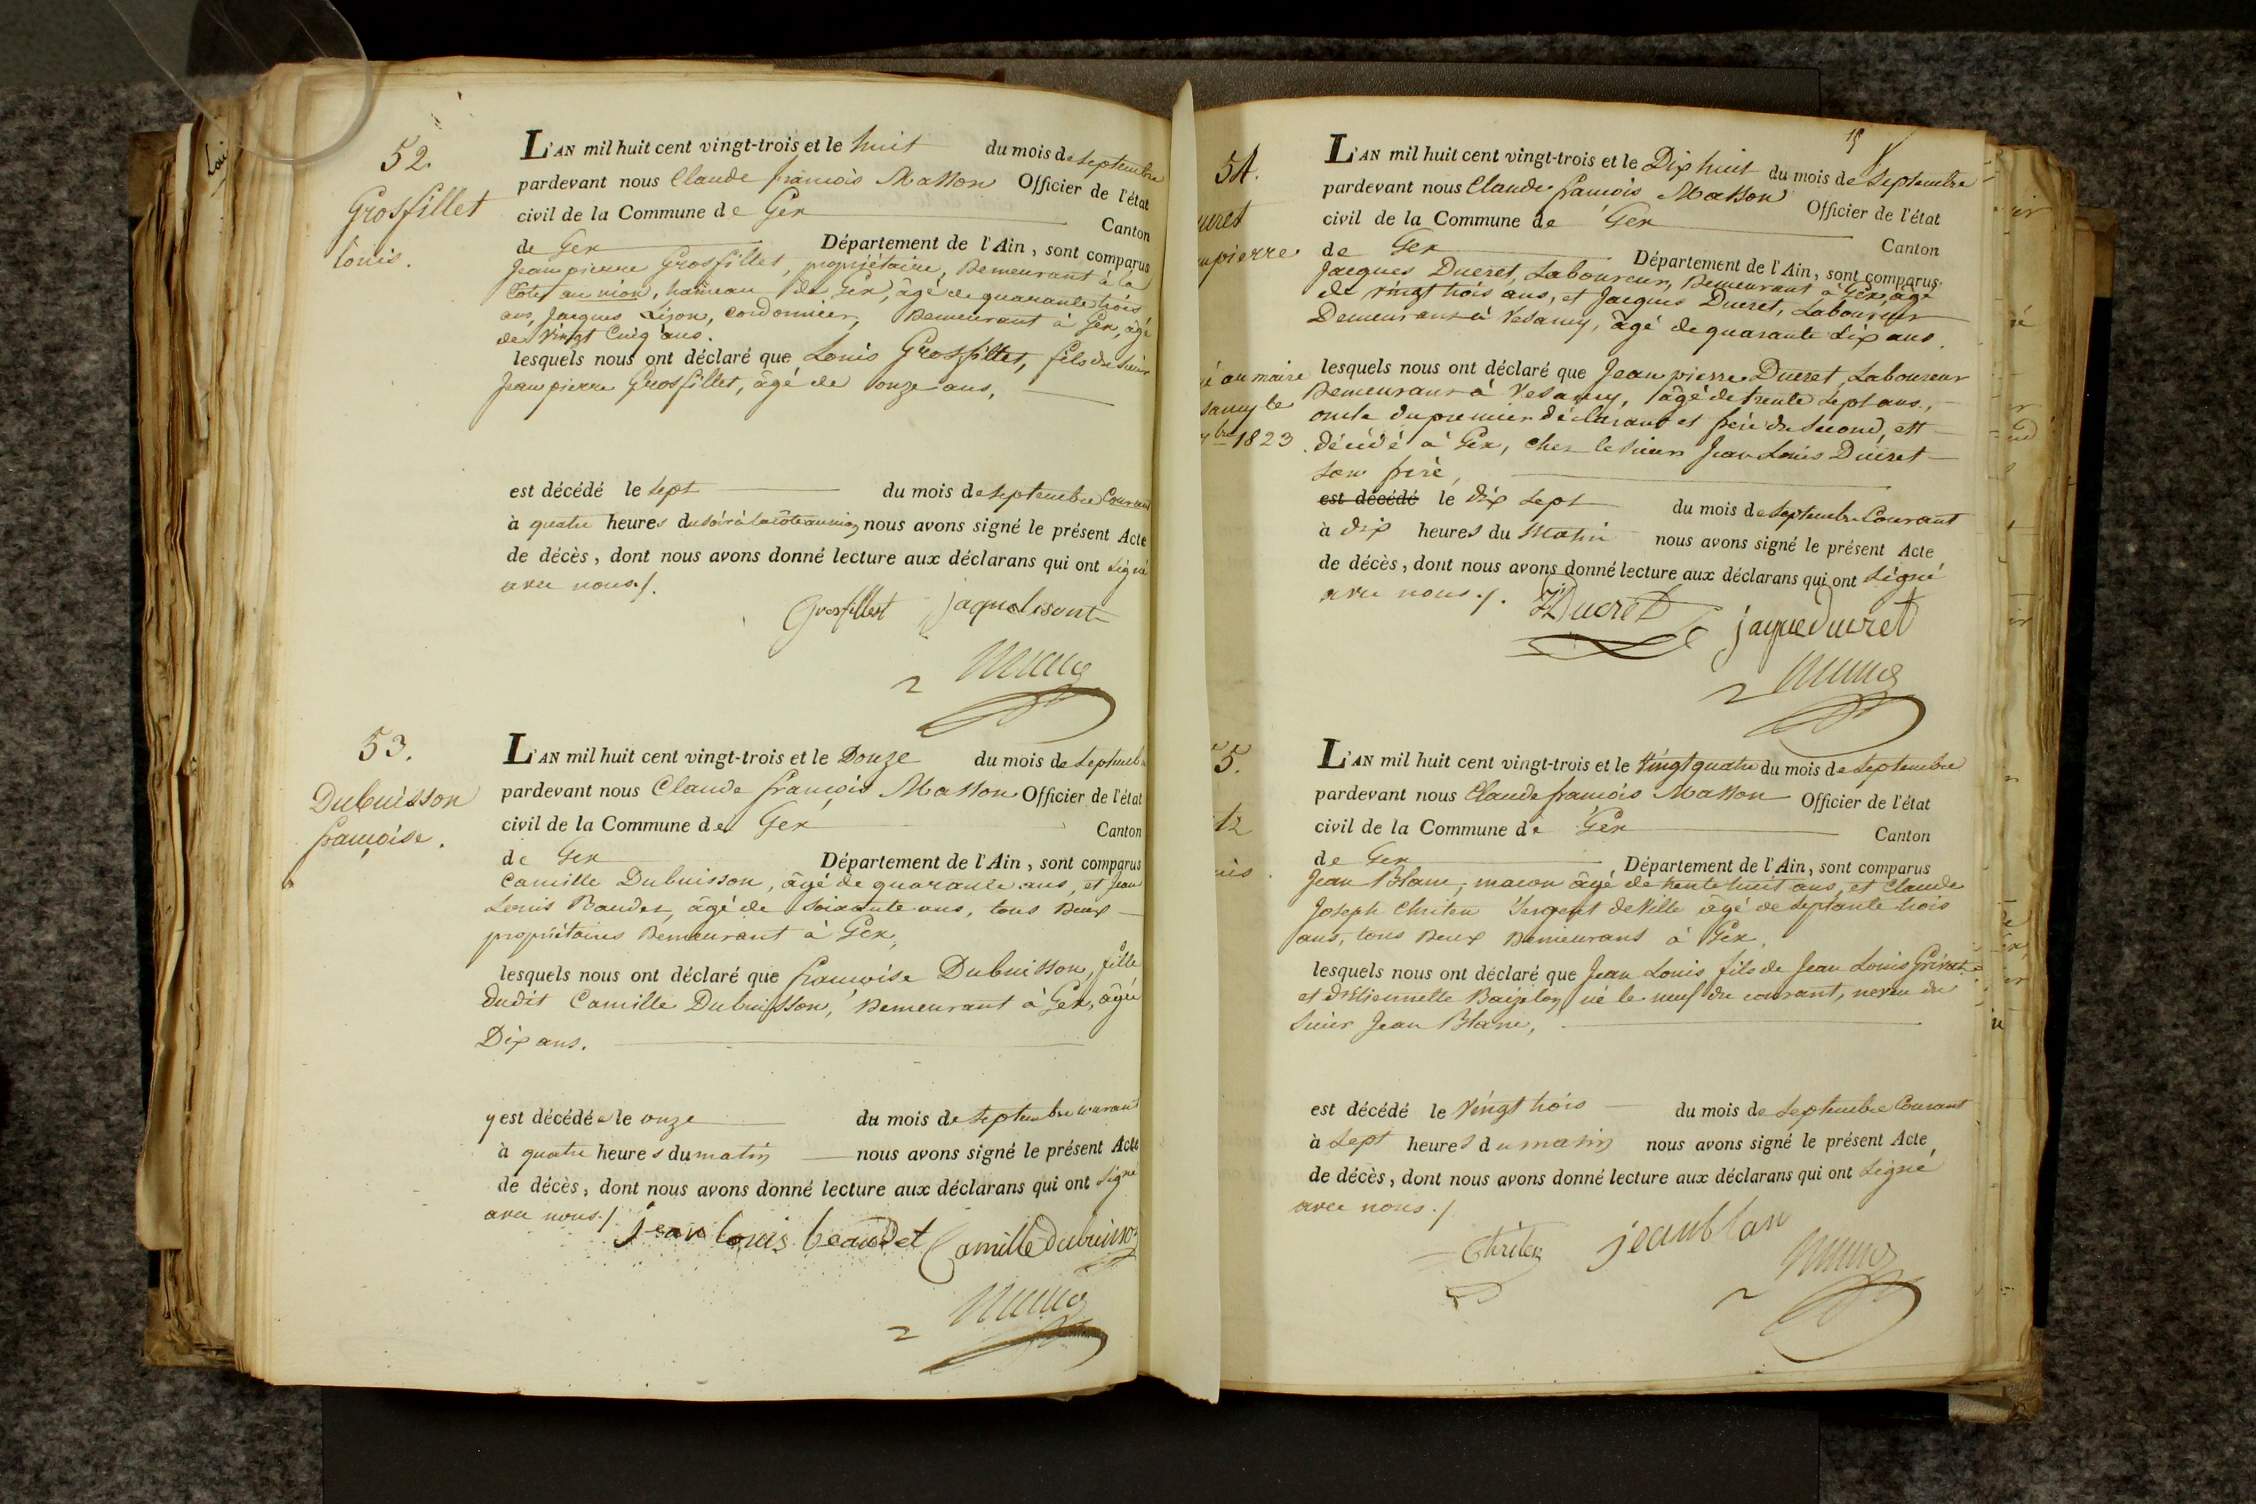 52.
Grosfillet
Louis.
L'AN mil huit cent vingt-trois et le huit du mois de Septembre
pardevant nous Claude françois Masson Officier de l'état
civil de la Commune de Gex Canton
de Gex Département de l'Ain, sont comparus
Jean pierre Grosfillet, propriétaire, Demeurant à la
Côte au nion, hameau de Gex, âgé de quarante trois
ans, Jacques Lizon, cordonnier, Demeurant à Gex, âgé
de vingt Cinq ans.
lesquels nous ont déclaré que Louis Grosfillet, fils du Sieur
Jean pierre Grosfillet, âgé de onze ans,
est décédé le Sept du mois de septembre Courant
à quatre heures du soir à la côte au nion, nous avons signé le présent Acte
de décès, dont nous avons donné lecture aux déclarans qui ont signé
avec nous./.
Grosfillest jaquelisont
53.
Dubuisson
françoise.
L'AN mil huit cent vingt-trois et le Douze du mois de Septembre
pardevant nous Claude françois Masson Officier de l'état
civil de la Commune de Gex Canton
de Gex Département de l'Ain, sont comparus
Camille Dubuisson, âgé de quarante ans, et Jean
Louis Baudet, âgé de soixante ans, tous Deux
propriétaires Demeurant à Gex,
lesquels nous ont déclaré que françoise Dubuisson, fille
dudit Camille Dubuisson, Demeurant à Gex, âgée
Dix ans.
y est décédée le onze du mois de septembre courant
à quatre heures du matin nous avons signé le présent Acte
de décès, dont nous avons donné lecture aux déclarans qui ont signé
avec nous./
jean louis beaudet Camille dubuisson
15
54.
ucret
npierre
é au maire
sancy le
7bre 1823.
L'AN mil huit cent vingt-trois et le Dix huit du mois de Septembre
pardevant nous Claude françois Masson Officier de l'état
civil de la Commune de Gex Canton
de Gex Département de l'Ain, sont comparus
Jacques Ducret, Laboureur, Demeurant à Gex, âgé
de vingt trois ans, et Jacques Ducret, Laboureur
Demeurant à Vesancy, âgé de quarante Six ans.
lesquels nous ont déclaré que Jean pierre Ducret, Laboureur
Demeurant à Vesancy, âgé de trente Sept ans,
oncle du premier déclarant et frère du Second, est
décédé à Gex, chez le sieur Jean Louis Ducret
son frère,
est décédé le dix Sept du mois de Septembre Courant
à dix heures du Matin nous avons signé le présent Acte
de décès, dont nous avons donné lecture aux déclarans qui ont Signé
avec nous./.
JDucret jaqueducret
5.
L'AN mil huit cent vingt-trois et le Vingt quatre du mois de Septembre
pardevant nous Claude françois Masson Officier de l'état
civil de la Commune de Gex Canton
de Gex Département de l'Ain, sont comparus
Jean Blanc, maçon âgé de trente huit ans, et Claude
Joseph Chriten Sergent de Ville âgé de septante trois
ans, tous Deux Demeurans à Gex,
lesquels nous ont déclaré que Jean Louis fils de Jean Louis
et d'Etiennette né le neuf du courant, neveu du
Sieur Jean Blanc,
est décédé le Vingt trois du mois de Septembre Courant
à Sept heures du matin nous avons signé le présent Acte
de décès, dont nous avons donné lecture aux déclarans qui ont Signé
avec nous./
Chriten jeanblan